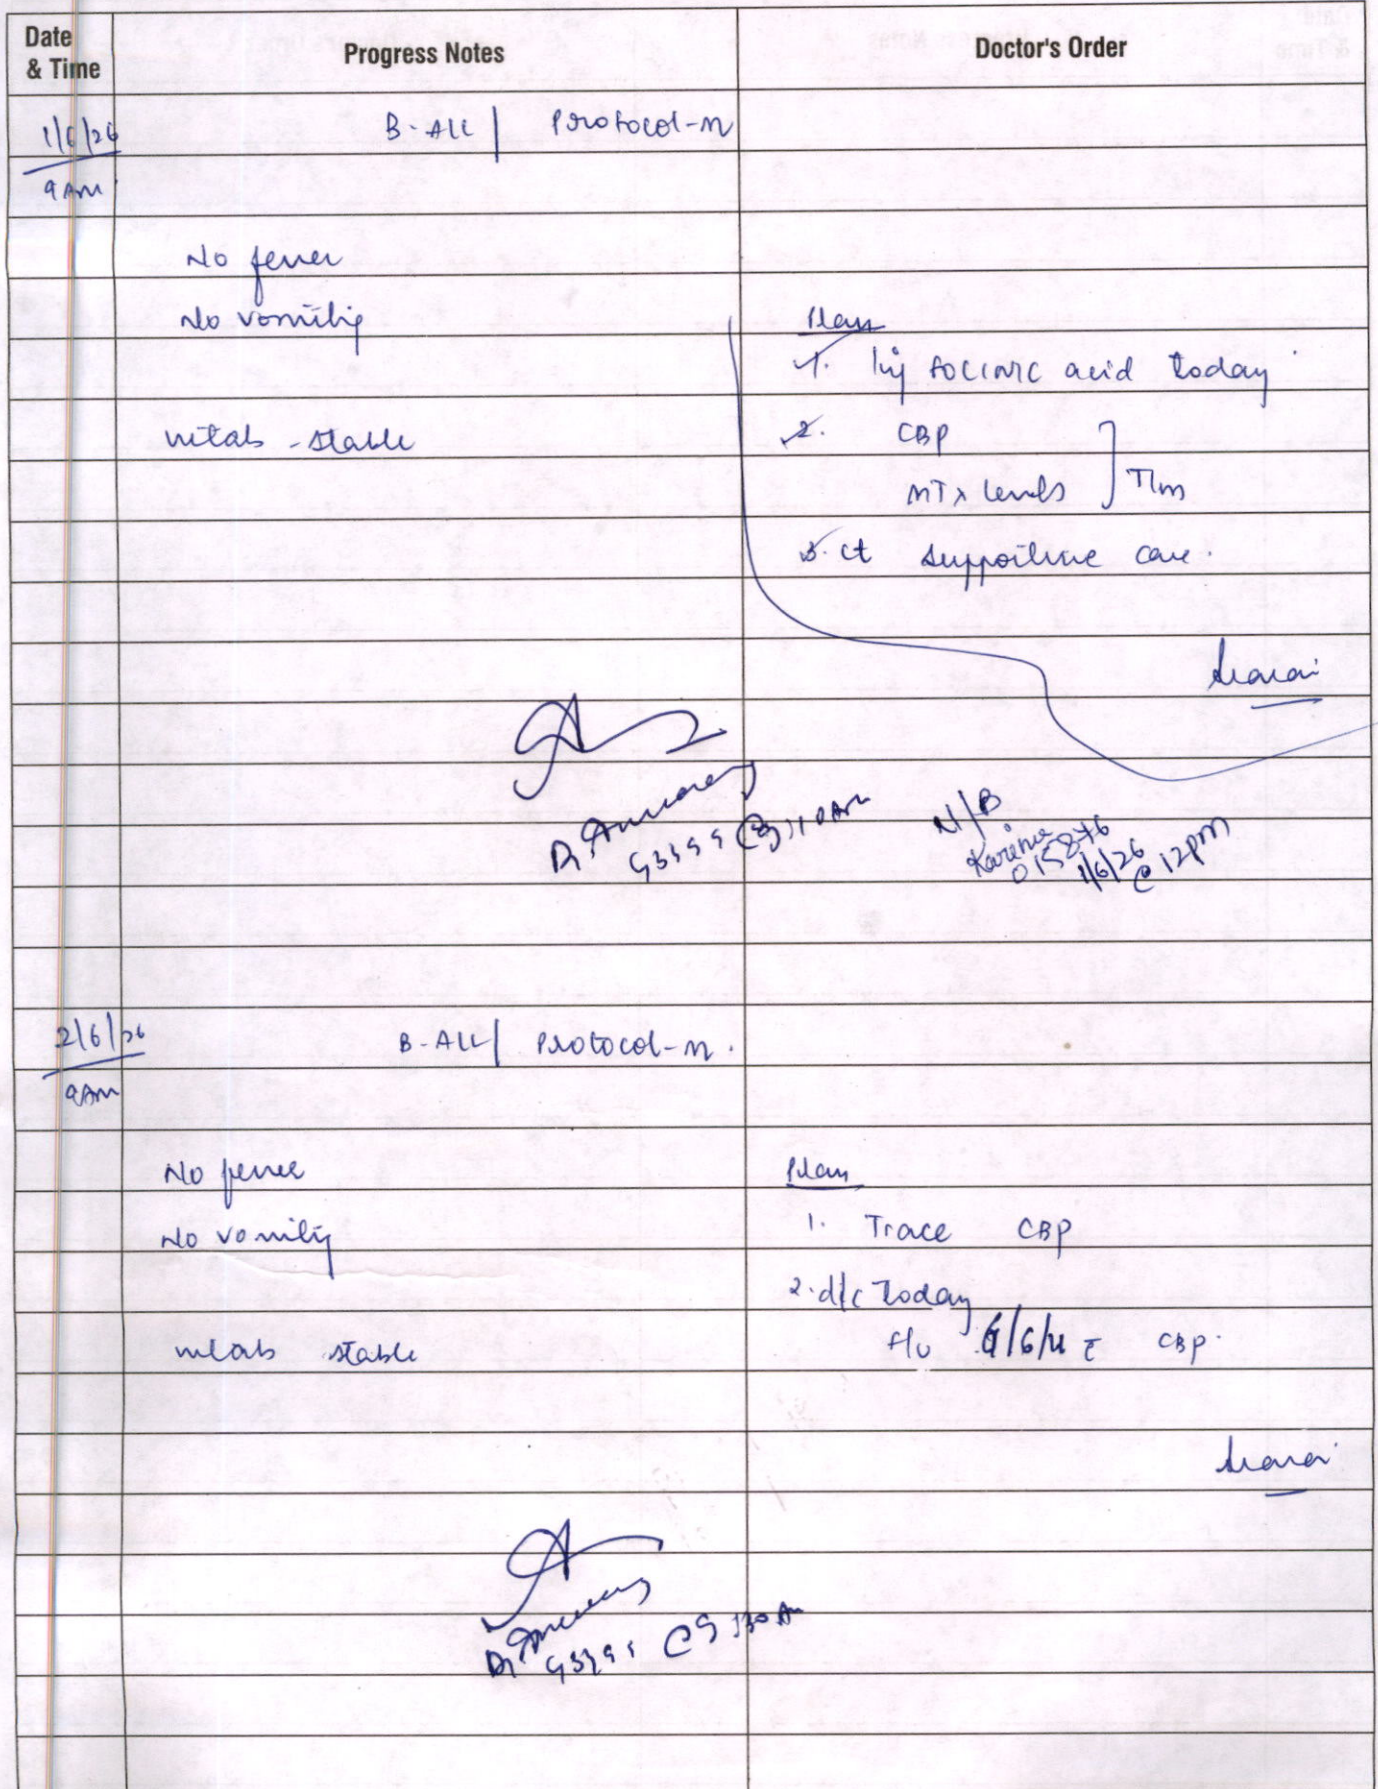 Date & Time
Progress Notes
Doctor's Order
1/6/26
9 AM
B-ALL | Protocol-M
No fever
No vomiting
vitals - stable
Plan
1. Inj FOLINIC acid today
2. CBP
MTx levels ] T/m
3. ct supportive care.
Dr.
@
N/B
015876
1/6/26
@ 12pm
2/6/26
9AM
B-ALL | Protocol-M.
No fever
No vomiting
vitals stable
Plan
1. Trace CBP
2. d/c Today
f/u c̄ CBP.
Dr
@ 9:30 AM